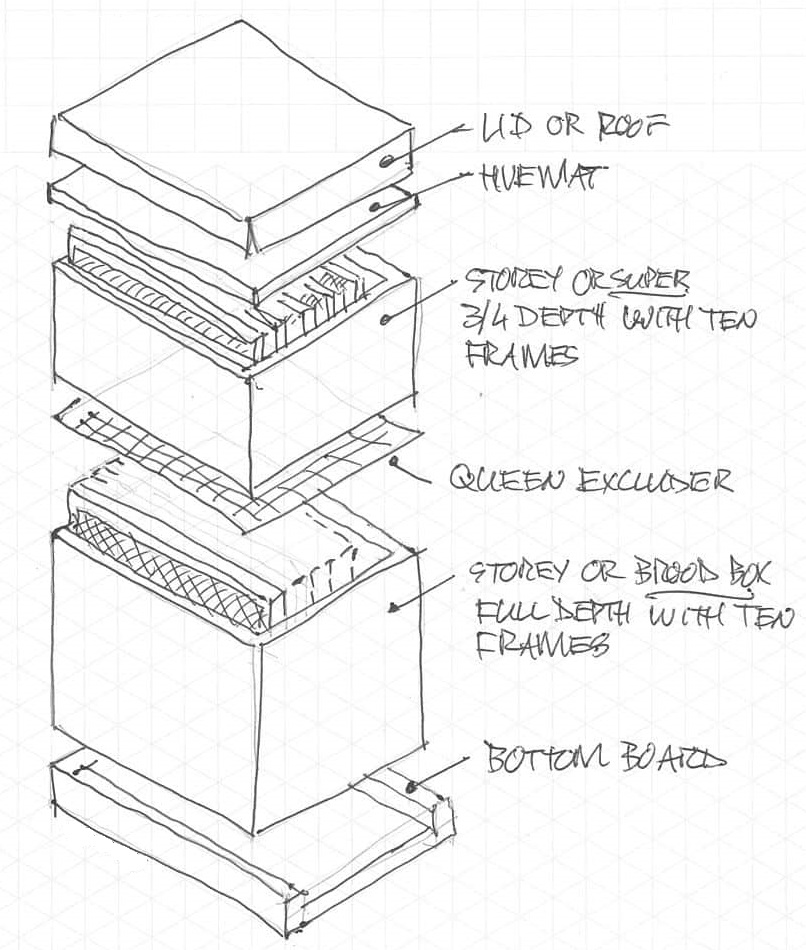 LID OR ROOF
HIVEMAT
STOREY OR SUPER
3/4 DEPTH WITH TEN
FRAMES
QUEEN EXCLUDER
STOREY OR BROOD BOX
FULL DEPTH WITH TEN
FRAMES
BOTTOM BOARD